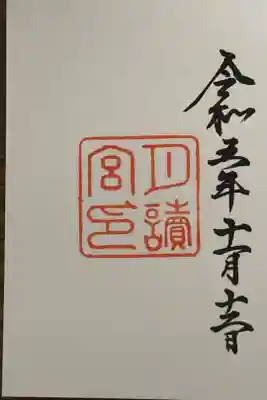 令和五年十一月
月讀
宮印